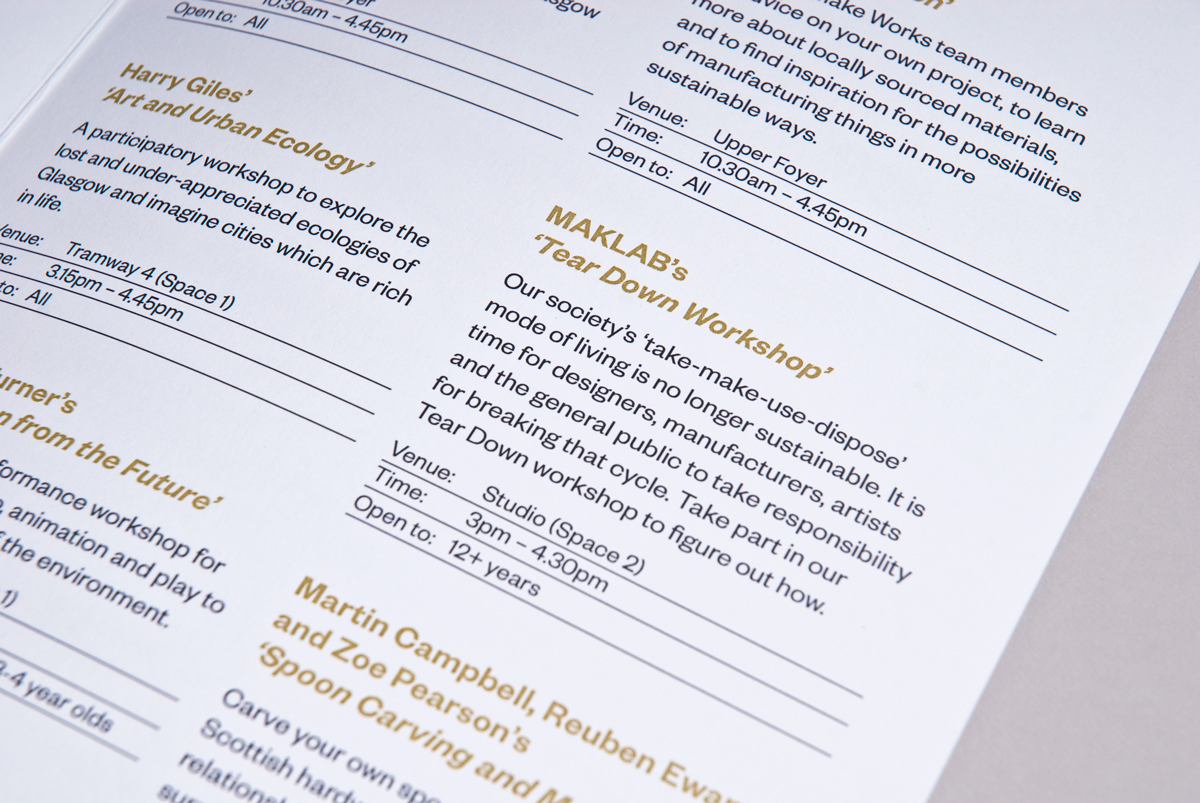 10.30am – 4.45pm
Open to: All
Harry Giles’
‘Art and Urban Ecology’
A participatory workshop to explore the
lost and under-appreciated ecologies of
Glasgow and imagine cities which are rich
in life.
Venue: Tramway 4 (Space 1)
3.15pm – 4.45pm
to: All
from the Future’
workshop for
animation and play to
the environment.
1)
3-4 year olds
Make Works team members
advice on your own project, to learn
more about locally sourced materials,
and to find inspiration for the possibilities
of manufacturing things in more
sustainable ways.
Venue: Upper Foyer
Time: 10.30am – 4.45pm
Open to: All
MAKLAB’s
‘Tear Down Workshop’
Our society’s ‘take-make-use-dispose’
mode of living is no longer sustainable. It is
time for designers, manufacturers, artists
and the general public to take responsibility
for breaking that cycle. Take part in our
Tear Down workshop to figure out how.
Venue: Studio (Space 2)
Time: 3pm – 4.30pm
Open to: 12+ years
Martin Campbell, Reuben Ewan
and Zoe Pearson’s
‘Spoon Carving and
Carve your own
Scottish